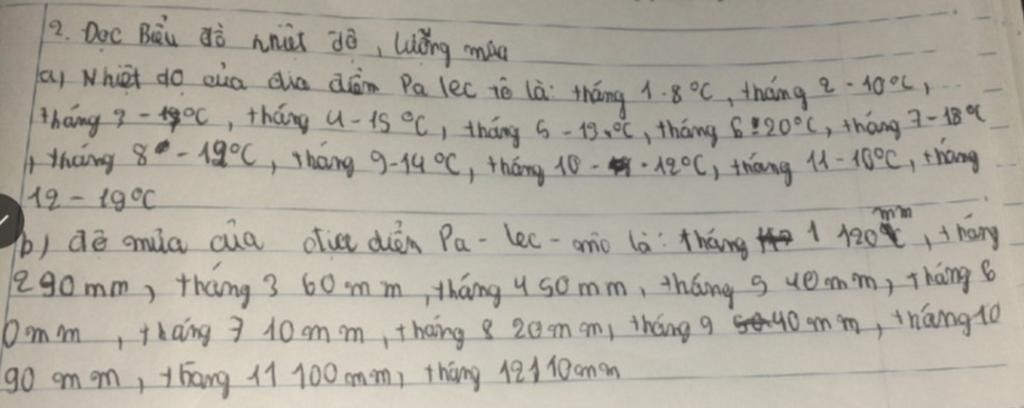 2. Đọc Biểu đồ nhiệt độ, lượng mưa
a, Nhiệt độ của địa điểm Pa lec là: tháng 1-8°C, tháng 2-10°C,
tháng 3 - °C, tháng 4-15°C, tháng 5-19°C, tháng 6:20°C, tháng 7-18°C
, tháng 8 -19°C, tháng 9-14°C, tháng 10 - 12°C, tháng 11-10°C, tháng
12-19°C
b) độ mưa của địa điểm Pa-lec-mô là: tháng 1 120mm, tháng
2 90mm, tháng 3 60mm, tháng 4 50mm, tháng 5 40mm, tháng 6
0mm, tháng 7 10mm, tháng 8 20mm, tháng 9 40mm, tháng 10
90mm, tháng 11 100mm, tháng 12 110mm